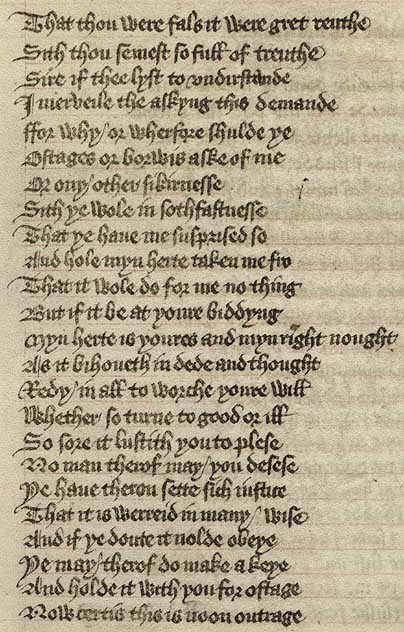 That thou were fals it were gret reuthe
Sith thou semest so full of treuthe
Sire if thee lyst to vndirstande
I merveile the askyng this demande
ffor why / or wherfore shulde ye
Ostages or borwis aske of me
Or ony / other sikirnesse
Sith ye wole in sothfastnesse
That ye have me susprised so
And hole myn herte taken me fro
That it wole do for me no thing
But if it be at youre biddyng
Myn herte is youres and myn right nought
As it bihoueth in dede and thought
Redy / in all to worche youre will
Whether so turne to good or ill
So sore it lustith you to plese
No man therof may / you desese
Ye have theron sette sich iustice
That it is werreid in many / wise
And if ye doute it nolde obeye
Ye may / therof do make a keye
And holde it with you for ostage
Now certis this is noon outrage